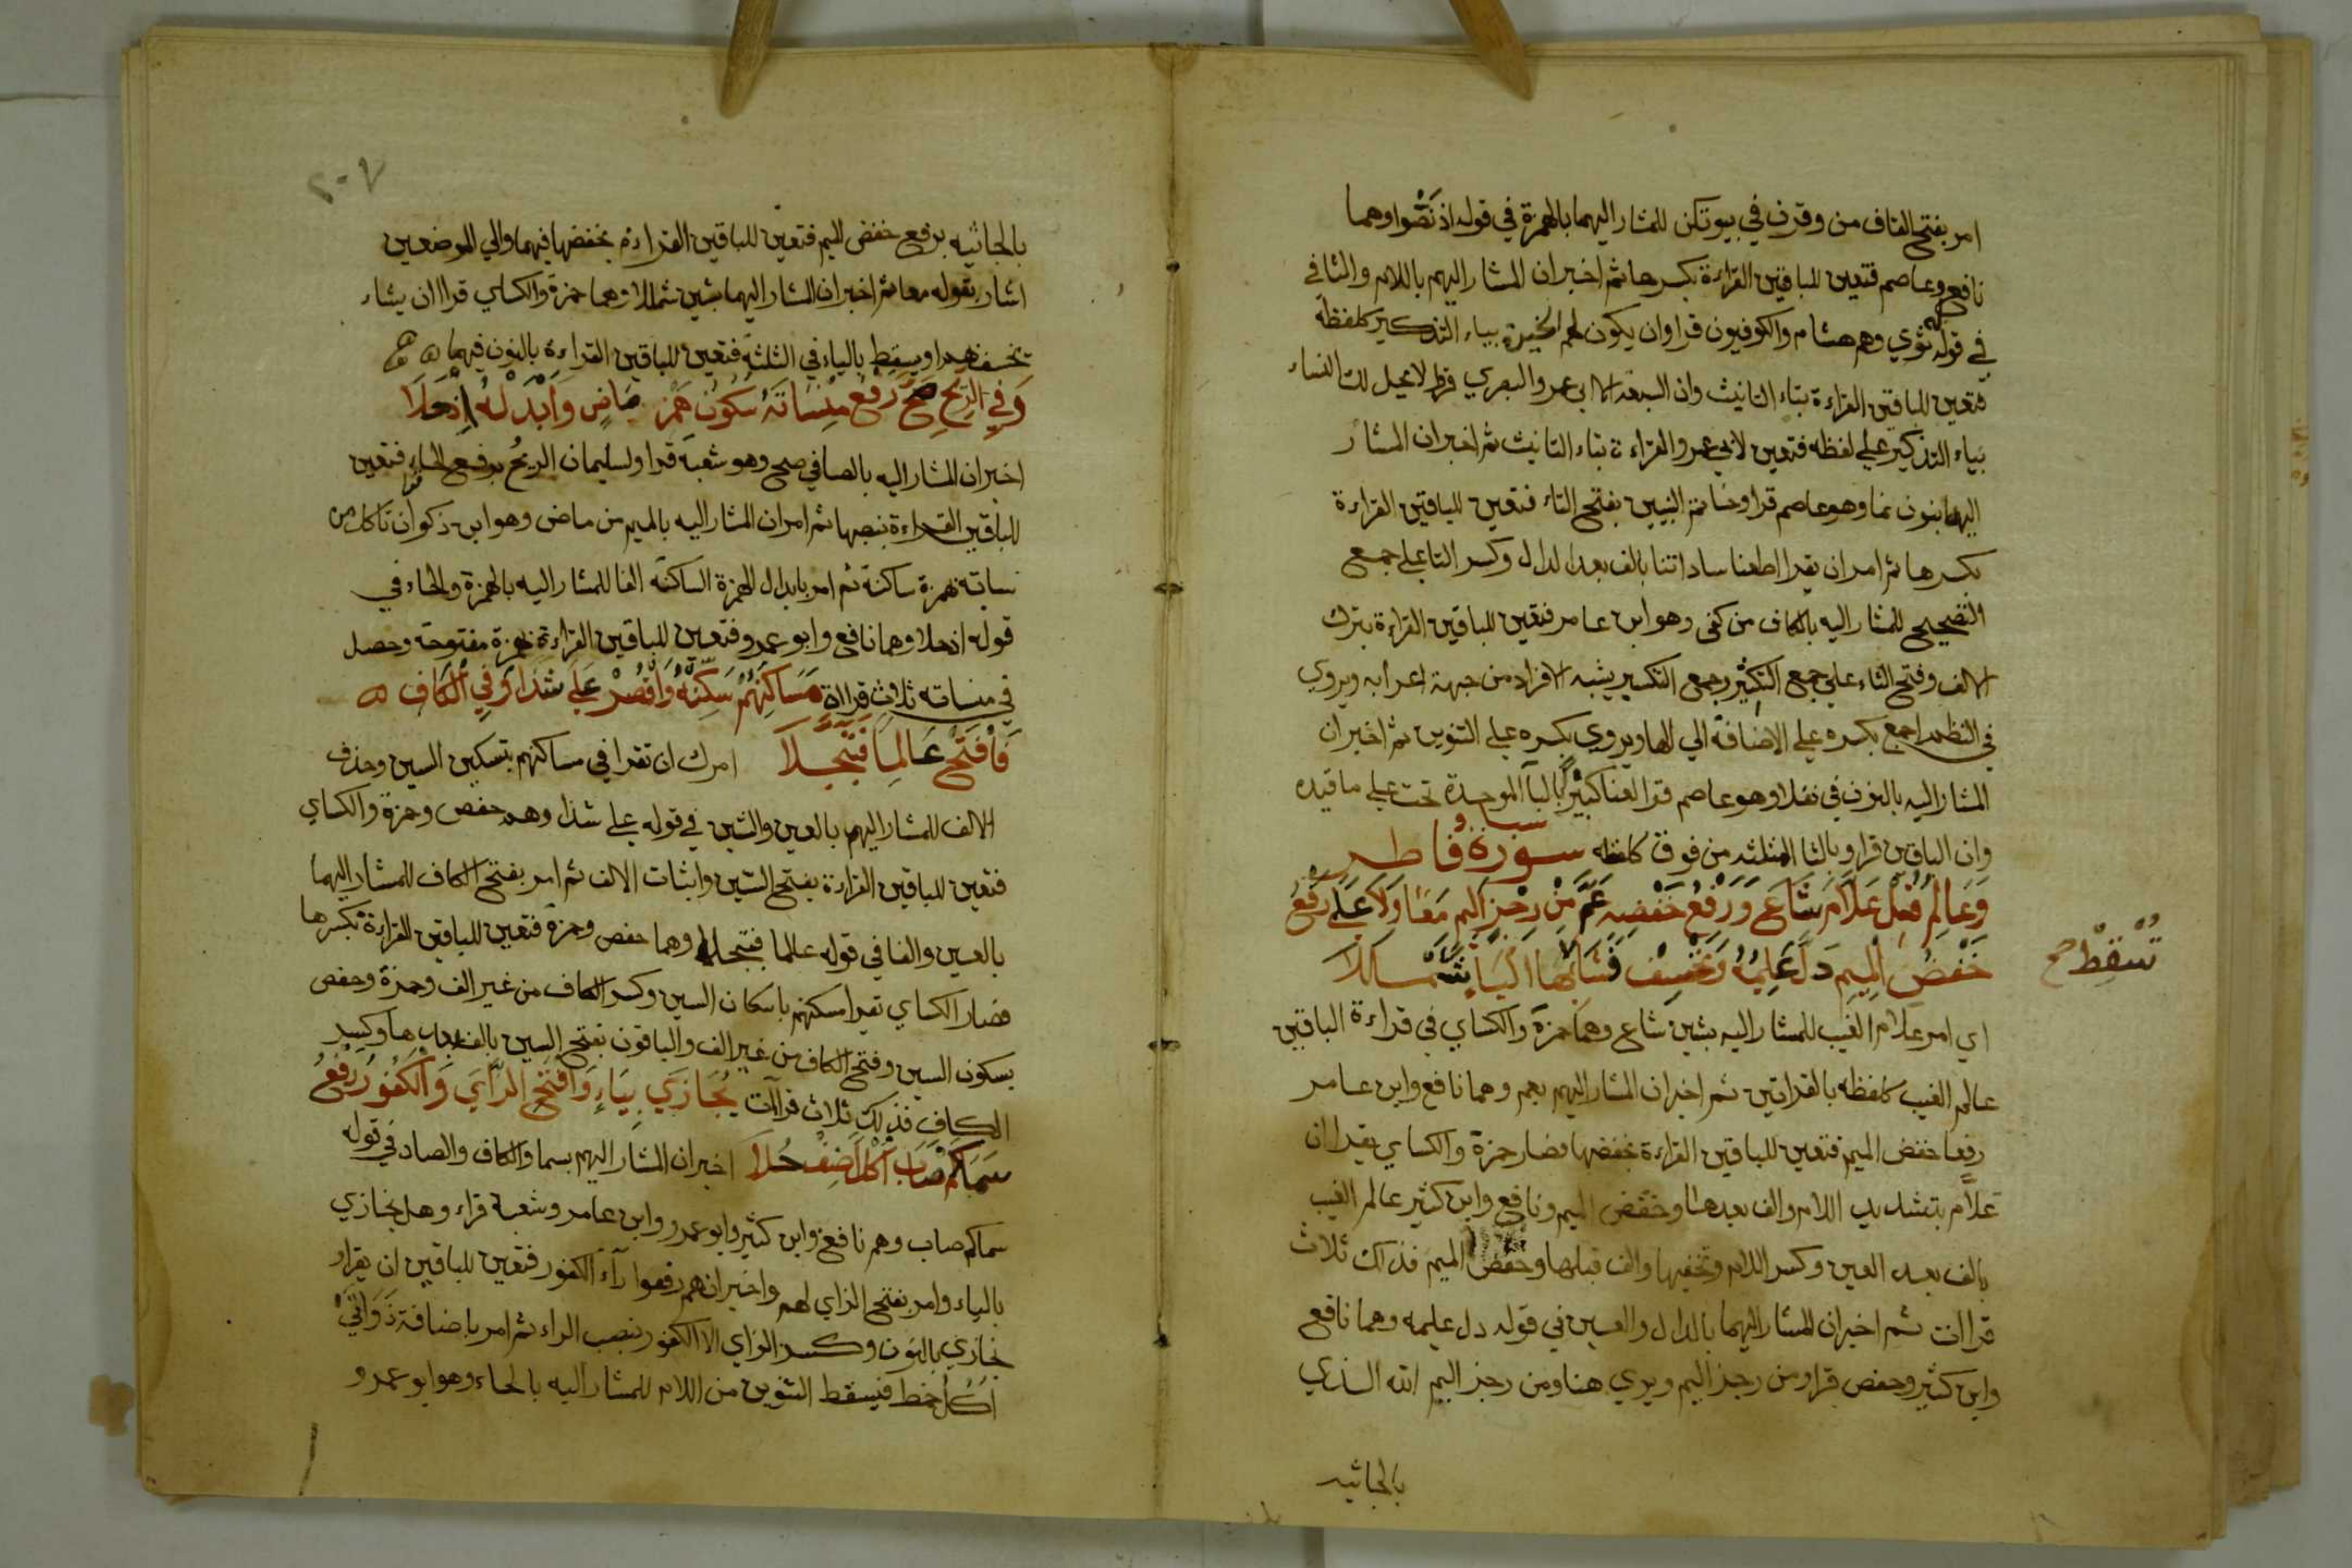 امر بفتح القاف من وقرن في بيوتكن للمشار اليهما بالهمزة في قوله اذ نصوا وهما
نافع وعاصم فتعين للباقين القراءة بكسرها ثم اخبر ان المشار اليهم باللام والثا في
في قوله ثوي وهم هشام والكوفيون قراوا ان يكون لهم الخيرة بياء التذكير كلفظه
فتعين للباقين القراءة بتاء التانيث وان السبعة الا ابي عمرو البصري قرا لا يحل لك النساء
بياء التذكير علي لفظه فتعين لابي عمرو القراءة بتاء التانيث ثم اخبر ان المشار
اليه بنون نما وهو عاصم قرا وخاتم النبيين بفتح التاء فتعين للباقين القراءة
بكسرها ثم امر ان يقرا اطعنا ساداتنا بالف بعد الدال وكسر التا علي جمع
التصحيح للمشار اليه بالكاف من كفي وهو ابن عامر فتعين للباقين القراءة بترك
الالف وفتح التاء علي جمع التكثير وجمع التكسير يشبه الافراد من جهة اعرابه ويروي
في النظم اجمع بكسره علي الاضافة الي الها ويروي بكسره علي التنوين ثم اخبر ان
المشار اليه بالنون في نفلا وهو عاصم قرا لعنا كبيرا بالبا الموحدة تحت علي ما قيده
وان الباقين قراو بالثا المثلثه من فوق كلفظه سورة سبا وفاطر
وَعَالِمِ قُلْ عَلَّامِ شَاعَ وَرَفْعُ خَفْضِهِ عَمَّ مِنْ رِجْزٍ اَلِيمٍ مَعًا وِلَا عَلَي رَفْعِ
خَفْضِ الْمِيمِ دَلَّ عَلِيمُهُ وَنَخْسِفْ نَشَأْ بِهَا الْيَا شَمْلَلَا
نُسْقِطْ صح
اي امر علام الغيب للمشار اليه بشين شاع وهما حمزة والكساي في قراءة الباقين
عالم الغيب كلفظه بالقراتين ثم اخبر ان المشار اليهم بعم وهما نافع وابن عامر
رفعا خفض الميم فتعين للباقين القراءة بخفضها فصار حمزة والكساي يقران
علَّام بتشديد اللام والف بعدها وخفض الميم ونافع وابن كثير عالم الغيب
بالف بعد العين وكسر اللام وتخفيفها والف قبلها وخفض الميم فذلك ثلاث
قراات ثم اخبر ان المشار اليهما بالدال والعين في قوله دل عليمه وهما نافع
وابن كثير وحفص قراو من رجز اليم ويري هنا ومن رجز اليم الله الذي
بالجاثيه
٢٠٧
بالجاثيه برفع خفض الميم فتعين للباقين القراءة بخفضها فيهما والي الموضعين
اشار بقوله معا ثم اخبر ان المشار اليهما بشين شمللا وهما حمزة والكساي قراا ان يشاء
يخسف بهم او يسقط بالياء في الثلثة فتعين للباقين القراءة بالنون فيها
وَفِي الرِّيحِ صَحَّ رَفْعُ مِنْسَاتَهُ سُكُونُ هَمْزِ مَاضٍ وَاَبْدِلْهُ اِذْ حَلَا
اخبر ان المشار اليه بالصا في صح وهو شعبة قرا ولسليمان الريحُ برفع الحاء فتعين
للباقين القراءة بنصبها ثم امر ان المشار اليه بالميم من ماض وهو ابن ذكوان تاكل من
نساته بهمزة ساكنة ثم امر بابدال الهمزة الساكنه الفا للمشار اليه بالهمزة والحاء في
قوله اذ حلا وهما نافع وابو عمرو فتعين للباقين القراءة بهمزة مفتوحة وحصل
في منساته ثلاث قراات مَسَاكِنَهُمْ سَكِّنْهُ وَاقْصُرْ عَلَي شَذَا وَفِي الْكَافِ
فَافْتَحْ عَالِمًا فَتُبَجَّلَا امرك ان تقرا في مساكنهم بتسكين السين وحذف
الالف للمشار اليهم بالعين والشين في قوله علي شذا وهم حفص وحمزة والكساي
فتعين للباقين القراءة بفتح السين واثبات الالف ثم امر بفتح الكاف للمشار اليهما
بالعين والفا في قوله عالما فتبجلا وهما حفص وحمزة فتعين للباقين القراءة بكسرها
فصار الكساي يقرا مسكنهم باسكان السين وكسر الكاف من غير الف وحمزة وحفص
بسكون السين وفتح الكاف من غير الف والباقون بفتح السين بالف بعدها وكسر
الكاف فذلك ثلاث قراآت يُجَازَي بِيَاءٍ وَافْتَحِ الزَّايَ وَالْكَفُورَ رَفْعُ
سَمَا كَمْ صَابَ اُكْلٍ اَضِفْ حُلَا اخبر ان المشار اليهم بسما والكاف والصاد في قوله
سما كم صاب وهم نافع وابن كثير وابو عمرو وابن عامر وشعبة قراء وهل يجازي
بالياء وامر بفتح الزاي لهم واخبر انهم رفعوا رآء الكفور فتعين للباقين ان يقراو
نجازي بالنون وكسر الزاي الا الكفور بنصب الراء ثم امر باضافة ذَوَاتَيْ
اُكُلِ خمط فيسقط التنوين من اللام للمشار اليه بالحاء وهو ابو عمرو